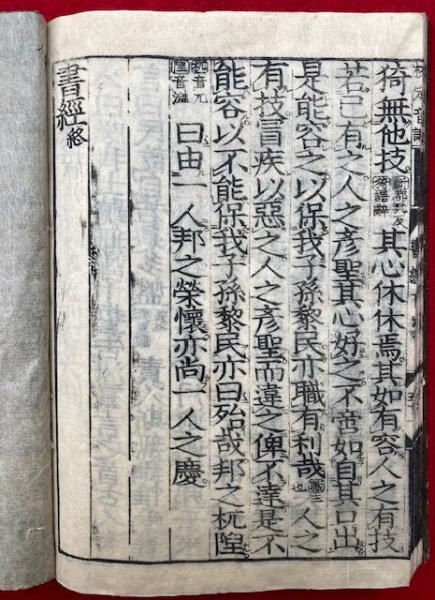 猗無他技斷都玩反猗語辭其心休休焉其如有容人之有技
若己有之人之彥聖其心好之不啻如自其口出
是能容之以保我子孫黎民亦職有利哉職主也人之
有技冒疾以惡之人之彥聖而違之俾不達是不
能容以不能保我子孫黎民亦曰殆哉邦之杌隉
杌音兀隉音涅曰由一人邦之榮懷亦尚一人之慶
書經終